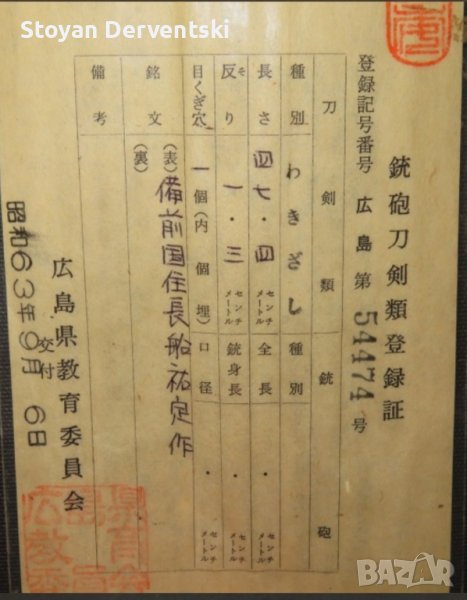 Stoyan Derventski
銃砲刀剣類登録証
登録記号番号 広島 第 54474 号
刀剣類 銃砲
種別 わきざし 種別
長さ 四七・四 センチメートル 全長 ・ センチメートル
反り 一・三 センチメートル 銃身長 ・ センチメートル
目くぎ穴 一個(内 個埋) 口径 ・ センチメートル
銘文 (表) 備前国住長船祐定作
(裏)
備考
広島県教育委員会
昭和63年9月6日
交付
BAZAR
bg